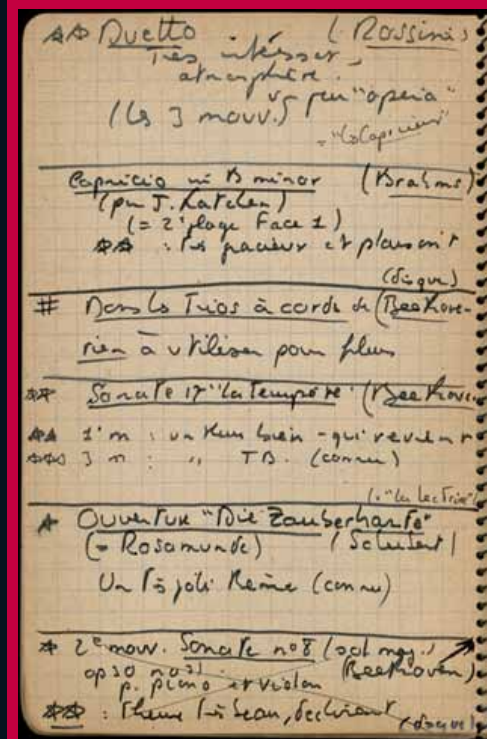 ☆☆ Duetto (Rossini)
Très intéressant,
atmosphère.
un peu "opéra"
(les 3 mouv.)
Capricio in B minor (Brahms)
(par J. Katchen)
(= 2e plage Face 1)
☆☆ : Très gracieux et plaisant
(disque)
# Dans les Trios à corde de (Beethoven
rien à utiliser pour films
☆☆ Sonate 17 "la tempête" (Beethoven
☆☆ 1er m : un thème bien - qui revient
☆☆☆ 3 m : " TB. (connu)
(= "la lectrice")
☆ Ouverture "Die Zauberharfe"
(= Rosamunde) (Schubert)
Un très joli thème (connu)
☆ 2e mouv. Sonate no 8 (sol maj.,
op 30 no 3) (Beethoven)
p. piano et violon
☆☆ : Thème très beau,
(disque)